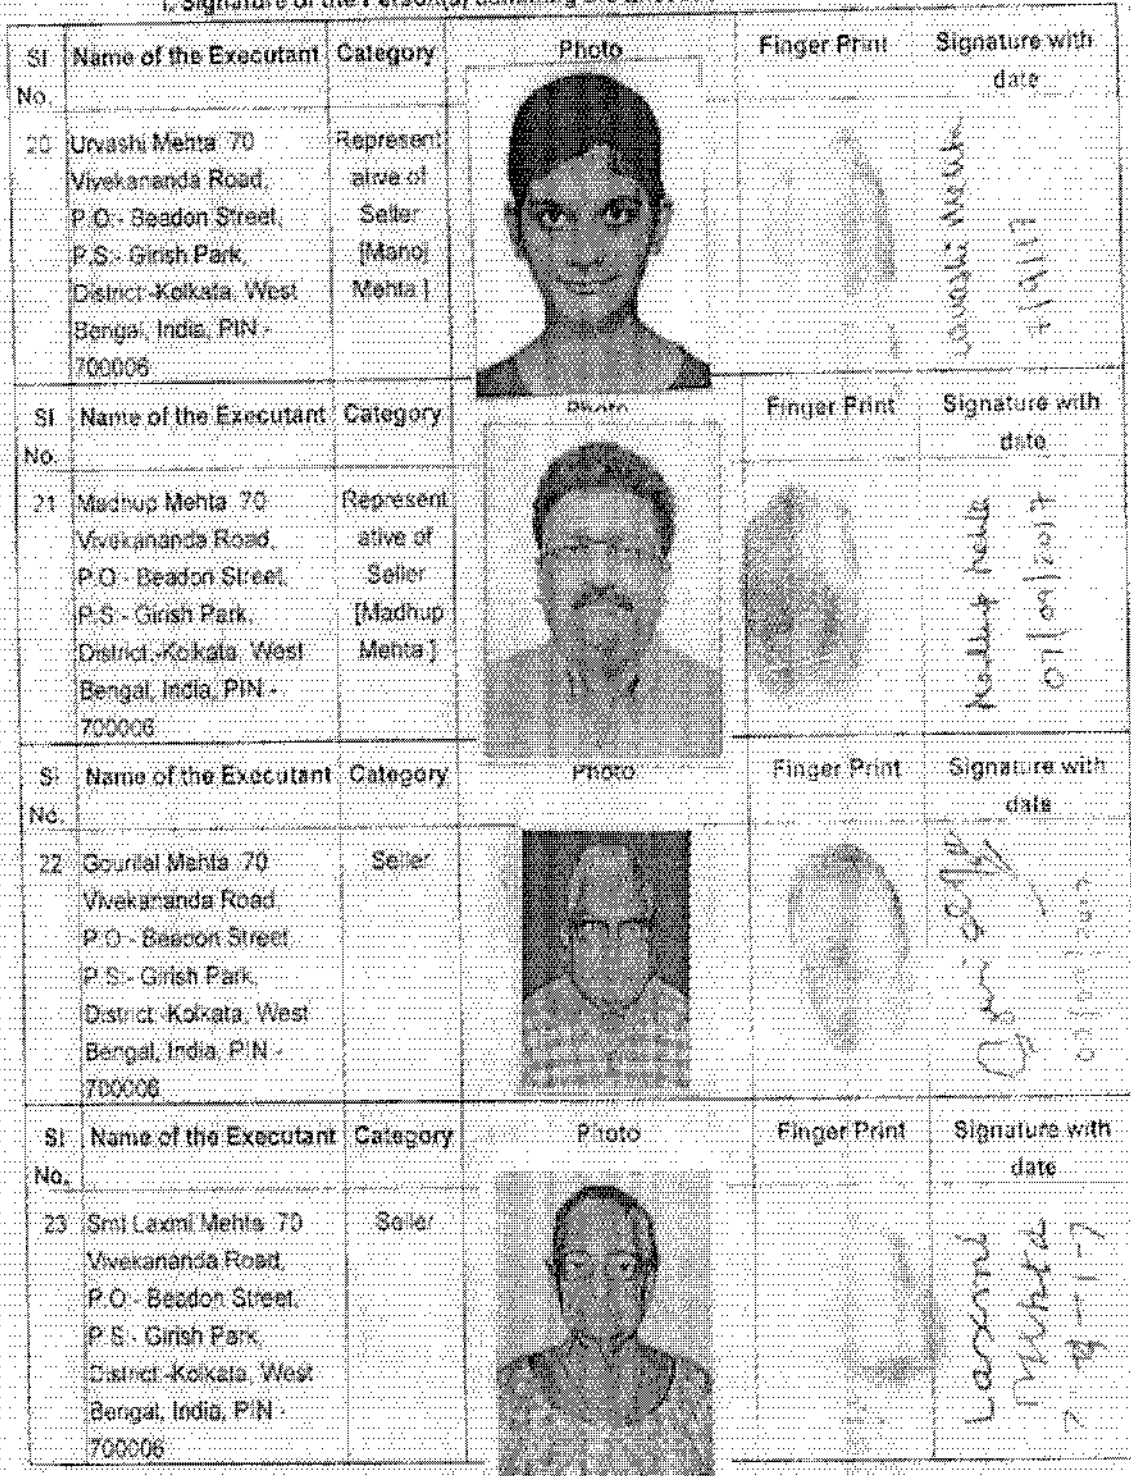 I. Signature of the Person(s) admitting the
Sl No. Name of the Executant Category Photo Finger Print Signature with date
20 Urvashi Mehta 70 Vivekananda Road, P.O:- Beadon Street, P.S:- Girish Park, District:-Kolkata, West Bengal, India, PIN - 700006
Representative of Seller [Manoj Mehta ]
Urvashi Mehta
7/9/17
Sl No. Name of the Executant Category Photo Finger Print Signature with date
21 Madhup Mehta 70 Vivekananda Road, P.O:- Beadon Street, P.S:- Girish Park, District:-Kolkata, West Bengal, India, PIN - 700006
Representative of Seller [Madhup Mehta ]
Madhup Mehta
07/09/2017
Sl No. Name of the Executant Category Photo Finger Print Signature with date
22 Gourilal Mehta 70 Vivekananda Road, P.O:- Beadon Street, P.S:- Girish Park, District:-Kolkata, West Bengal, India, PIN - 700006
Seller
Sl No. Name of the Executant Category Photo Finger Print Signature with date
23 Smt Laxmi Mehta 70 Vivekananda Road, P.O:- Beadon Street, P.S:- Girish Park, District:-Kolkata, West Bengal, India, PIN - 700006
Seller
Laxmi
Mehta